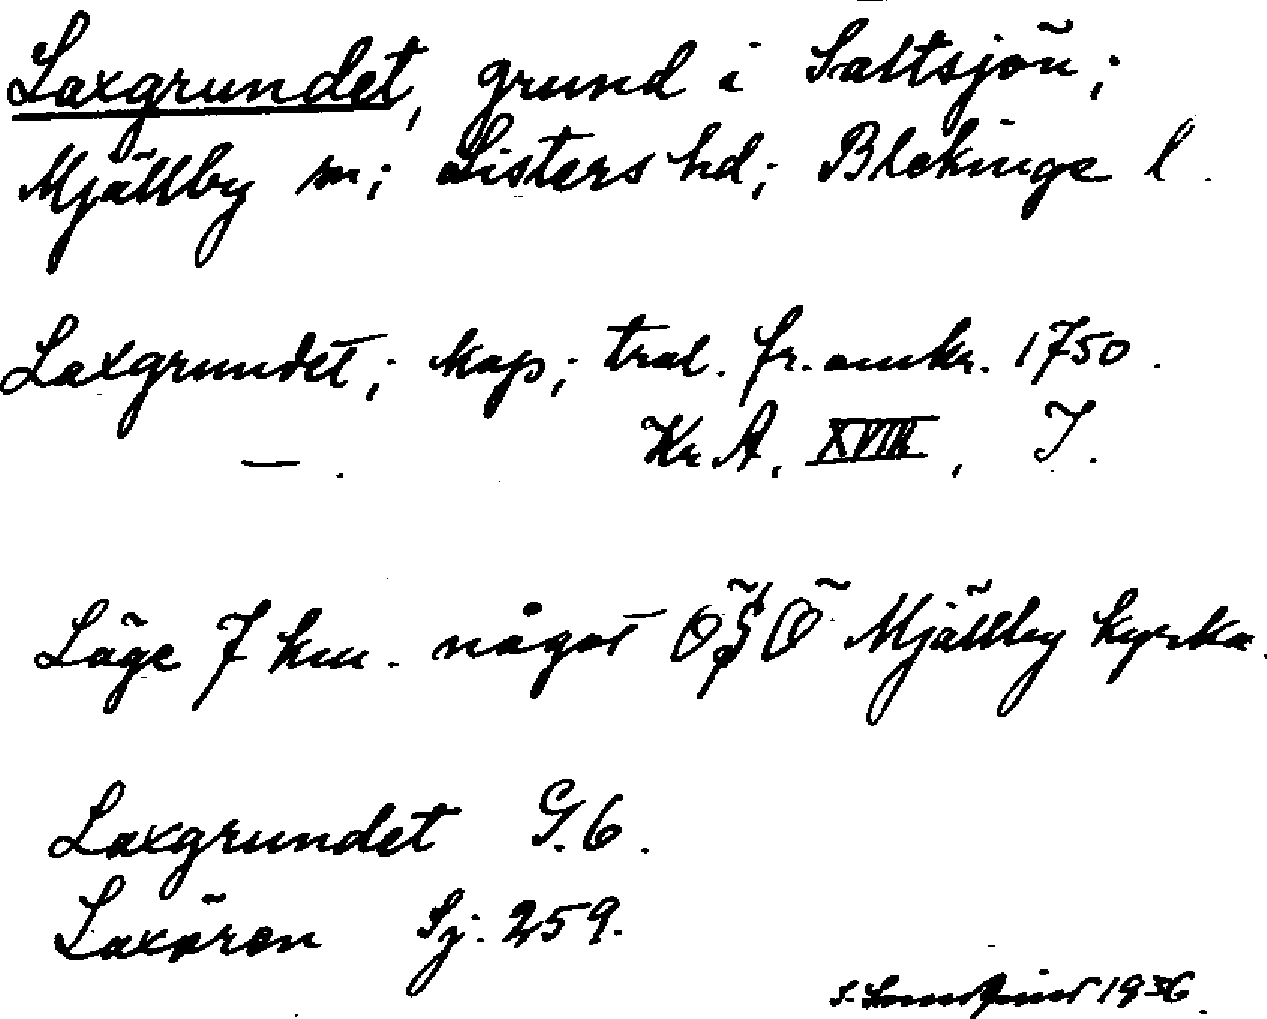 Laxgrundet, grund i Saltsjön;
Mjällby sn; Listers hd; Blekinge l.
Laxgrundet; kap; trol. fr. omkr. 1750.
—. Kr. A, XVIII, I.
Läge 7 km. något OSO Mjällby kyrka.
Laxgrundet G. 6.
Laxören Sj. 259.
1936.